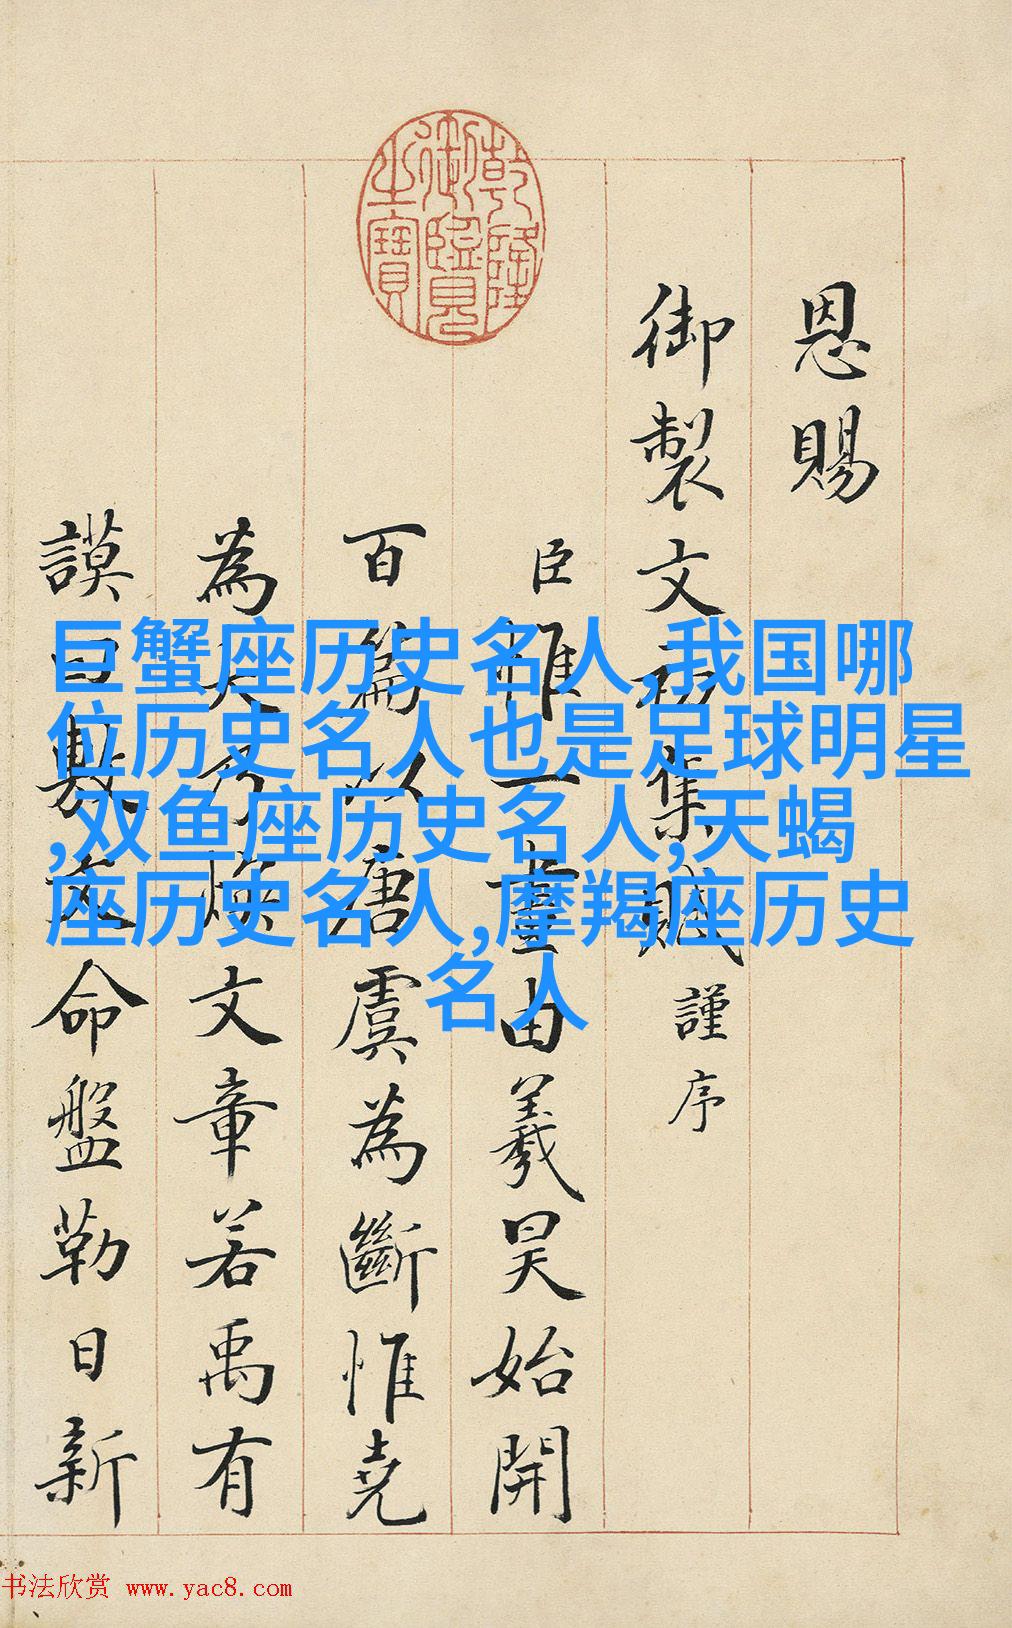 乾隆
御覽
之寶
恩賜
御製文初集賦謹序
臣惟一畫由羲昊始開
百篇以唐虞為斷惟堯
為大乃煥文章若禹有
謨曰敷文命盤勒日新
巨蟹座历史名人,我国哪
位历史名人也是足球明星
,双鱼座历史名人,天蝎
座历史名人,摩羯座历史
名人
书法欣赏 www.yac8.com